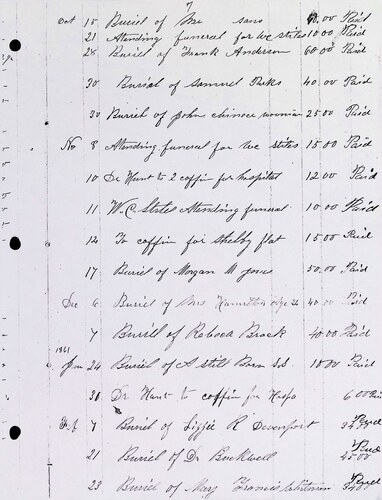 7
Oct 15 Buriel of Mrs sans 40.00 Paid
21 Atending funeral for we stites 10 00 Paid
28 Buriel of Frank Anderson 60 00 Paid
30 Burial of Samuel Parks 40.00 Paid
30 Buriel of John chinee woman 25 00 Paid
No 8 Atending funeral for we stites 15 00 Paid
10 Dr Hunt to 2 coffin for hospital 12 00 Paid
11 W.C. Stites Atending funeral 10 00 Paid
12 To coffin for Shelby flat 15 00 Paid
17 Buriel of Morgan M Jones 50.00 Paid
Dec 6 Buriel of Mrs Hamilton age 26 40 00 Pid
7 Buriell of Rebeca Brock 40.00 Paid
1861
Jan 24 Buriel of A still Born 10 00 Paid
30 Dr Hunt to coffin for Hosp 6 00 Pai
Feb 7 Buriel of Lizzie R Devenport Paid
21 Buriel of Dr Buckwell 45 00 Paid
23 Buriel of Mary Francis Whitman Paid